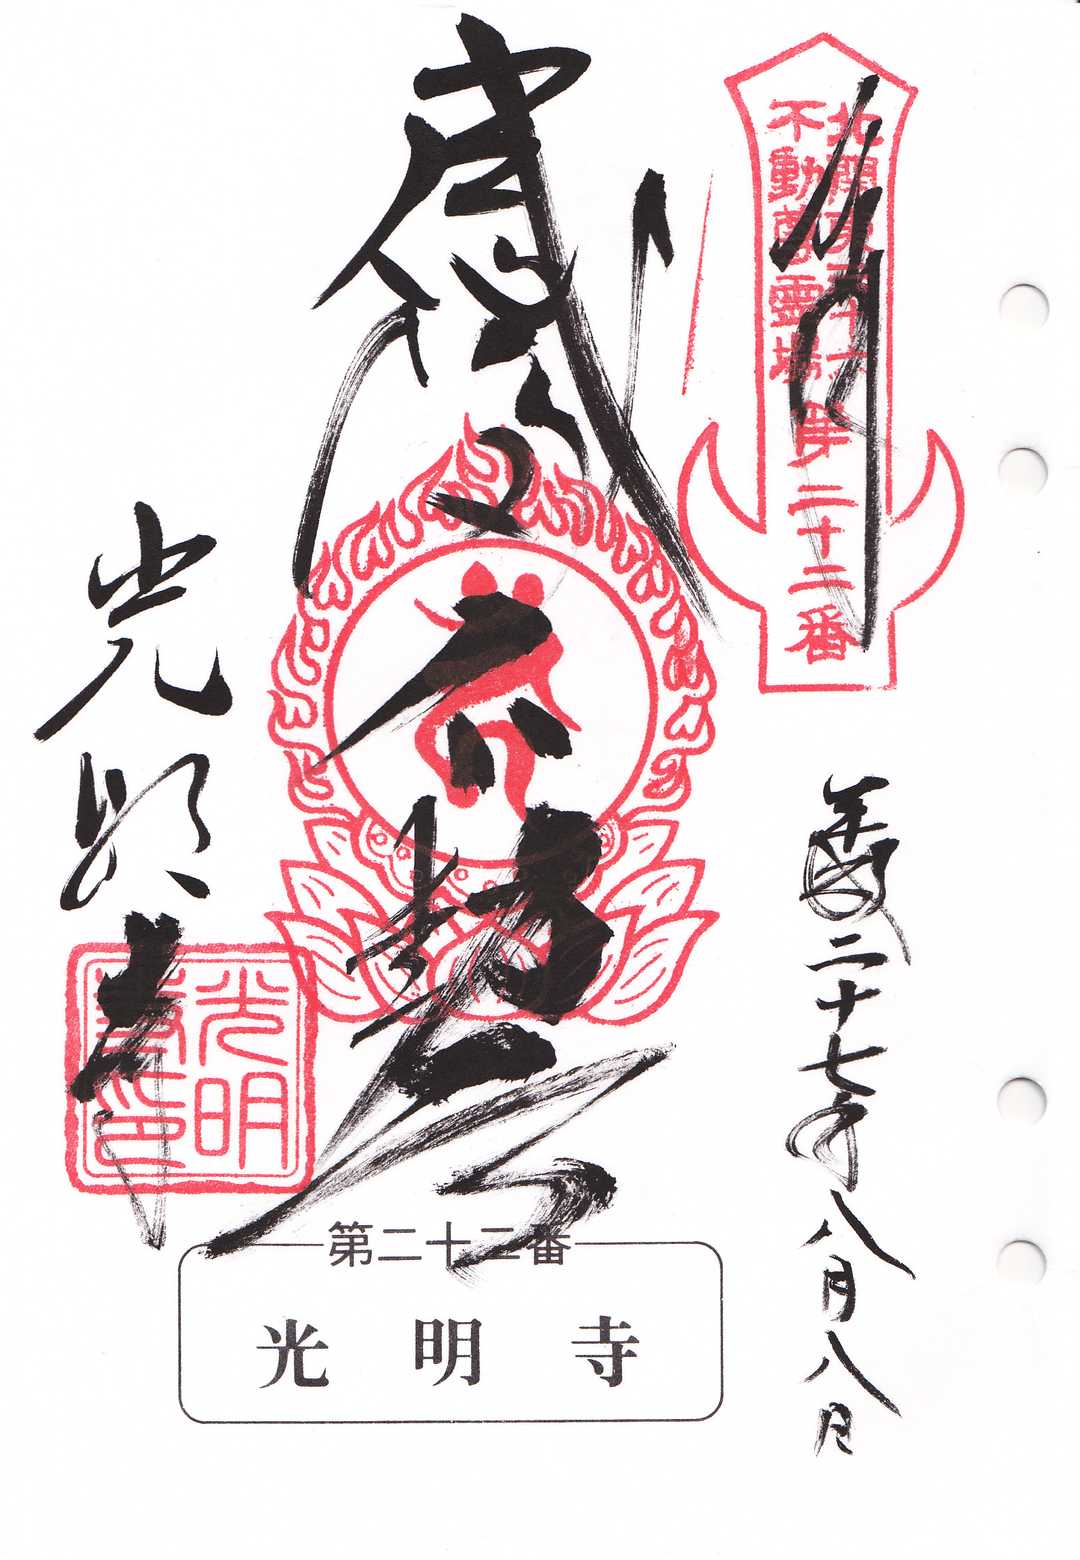 奉拝
北関東三十六
不動尊霊場
第二十二番
平成二十七年八月八日
光明寺
光明
寺印
第二十二番
光明寺